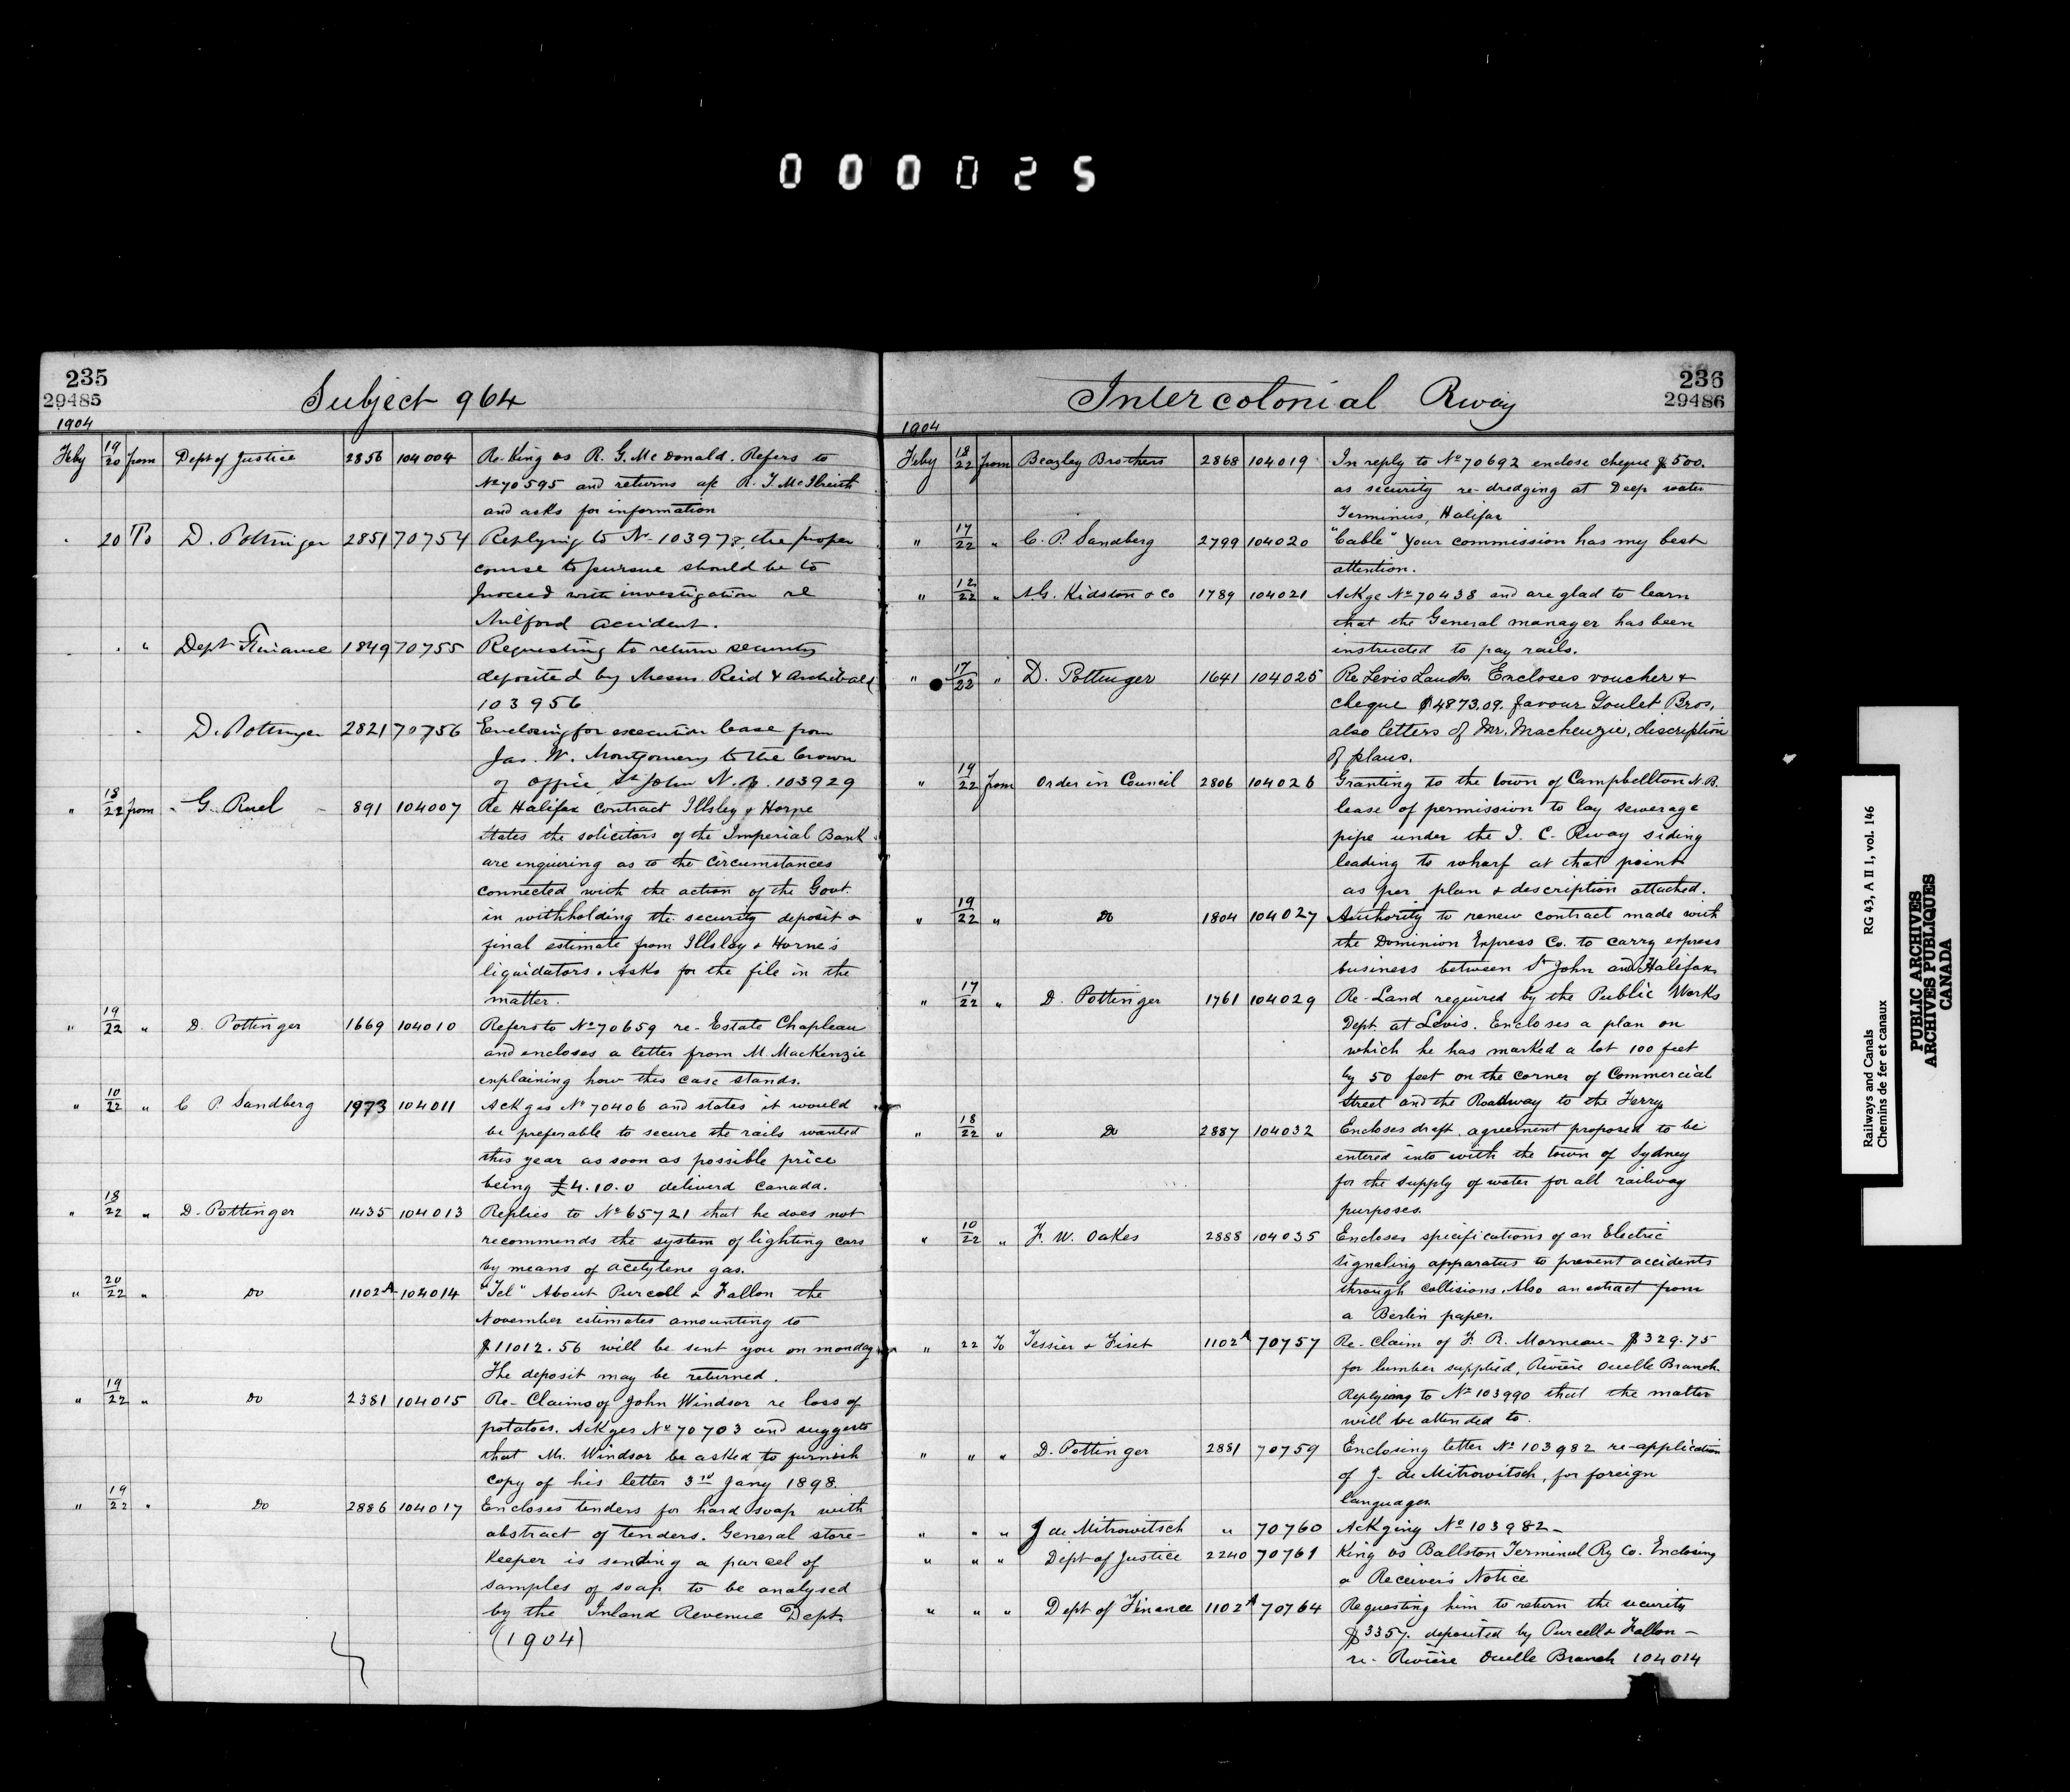 000025
235
29485
Subject 964
1904
Feby 19/20 from Dept of Justice 2856 104004 Re. King vs R. G. McDonald. Refers to
No 70595 and returns a/c R. T. McIlreith
and asks for information
" 20 To D. Pottinger 2851 70754 Replying to No- 103978, the proper
course to pursue should be to
proceed with investigation re
Milford accident.
" " Dept Finance 1849 70755 Requesting to return security
deposited by Messrs Reid & Archibald
103956
" D. Pottinger 2821 70756 Enclosing for execution lease from
Jas. W. Montgomery to the Crown
of office, St John N.B. 103929
" 18/22 from G. Ruel 891 104007 Re Halifax contract Illsley & Horne
states the solicitors of the Imperial Bank
are enquiring as to the circumstances
connected with the action of the Govt.
in withholding the security deposit &
final estimate from Illsley & Horne's
liquidators. Asks for the file in the
matter.
" 19/22 " D. Pottinger 1669 104010 Refers to No 70659 re- Estate Chapleau
and encloses a letter from M. MacKenzie
explaining how this case stands.
" 10/22 " C P. Sandberg 1973 104011 Ackges No 70406 and states it would
be preferable to secure the rails wanted
this year as soon as possible price
being £4.10.0 deliverd Canada.
" 18/22 " D. Pottinger 1435 104013 Replies to No 65721 that he does not
recommends the system of lighting cars
by means of acetylene gas.
" 20/22 " Do 1102A 104014 "Tel" About Purcell & Fallon the
November estimates amounting to
$11012.56 will be sent you on monday.
The deposit may be returned.
" 19/22 " Do 2381 104015 Re- Claims of John Windsor re loss of
potatoes. Ackges No 70703 and suggests
that Mr. Windsor be asked to furnish
copy of his letter 3rd Jany 1898.
" 19/22 " Do 2886 104017 Encloses tenders for hard soap with
abstract of tenders. General store-
keeper is sending a parcel of
samples of soap to be analysed
by the Inland Revenue Dept.
(1904)
236
29486
Intercolonial Rway
1904
Feby 18/22 from Beazley Brothers 2868 104019 In reply to No 70692 enclose cheque $500.
as security re- dredging at Deep water
Terminus, Halifax
" 17/22 " C. P. Sandberg 2799 104020 "Cable" Your commission has my best
attention.
" 12/22 " A.G. Kidston & Co 1789 104021 Ackge No 70438 and are glad to learn
that the General manager has been
instructed to pay rails.
" 17/22 " D. Pottinger 1641 104025 Re Levis Lands. Encloses voucher &
cheque $4873.09. favour Goulet Bros.
also letters of Mr. Mackenzie, discription
of plans.
" 19/22 from Order in Council 2806 104026 Granting to the town of Campbellton N.B.
lease of permission to lay sewerage
pipe under the I. C. Rway siding
leading to wharf at that point
as per plan & description attached.
" 19/22 " Do 1804 104027 Authority to renew contract made with
the Dominion Express Co. to carry express
business between St John and Halifax.
" 17/22 " D. Pottinger 1761 104029 Re- Land required by the Public Works
Dept. at Levis. Encloses a plan on
which he has marked a lot 100 feet
by 50 feet on the corner of Commercial
Street and the Roadway to the Ferry.
" 18/22 " Do 2887 104032 Encloses draft agreement proposed to be
entered into with the town of Sydney
for the supply of water for all railway
purposes.
" 10/22 " F. W. Oakes 2888 104035 Encloses spicifications of an Electric
signaling apparatus to prevent accidents
through collisions. Also an extract from
a Berlin paper.
" 22 To Tessier & Fiset 1102A 70757 Re- Claim of F. R. Morneau- $329.75
for lumber supplied, Rivière Ouelle Branch.
Replying to No 103990 that the matter
will be attended to.
" " " D. Pottinger 2881 70759 Enclosing letter No 103982 re-application
of J. de Mitrowitsch, for foreign
languages.
" " " J de Mitrowitsch " 70760 Ackging No 103982-
" " " Dept of Justice 2240 70761 King vs Ballston Terminal Ry Co. Enclosing
a Receiver's Notice
" " " Dept of Finance 1102A 70764 Requesting him to return the security
$3357. deposited by Purcell & Fallon -
re- Rivière Ouelle Branch 104014
Railways and Canals
Chemins de fer et canaux
RG 43, A II 1, vol. 146
PUBLIC ARCHIVES
ARCHIVES PUBLIQUES
CANADA